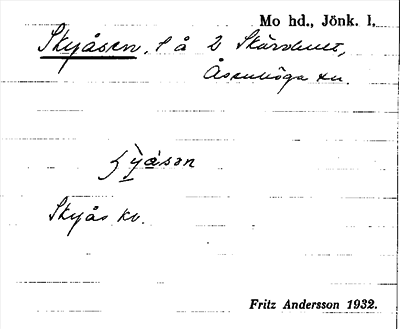 Mo hd., Jönk. l.
Skyåsen, l å 2 Skärshult,
Åsenhöga sn.
yåsen
Skyås kv.
Fritz Andersson 1932.